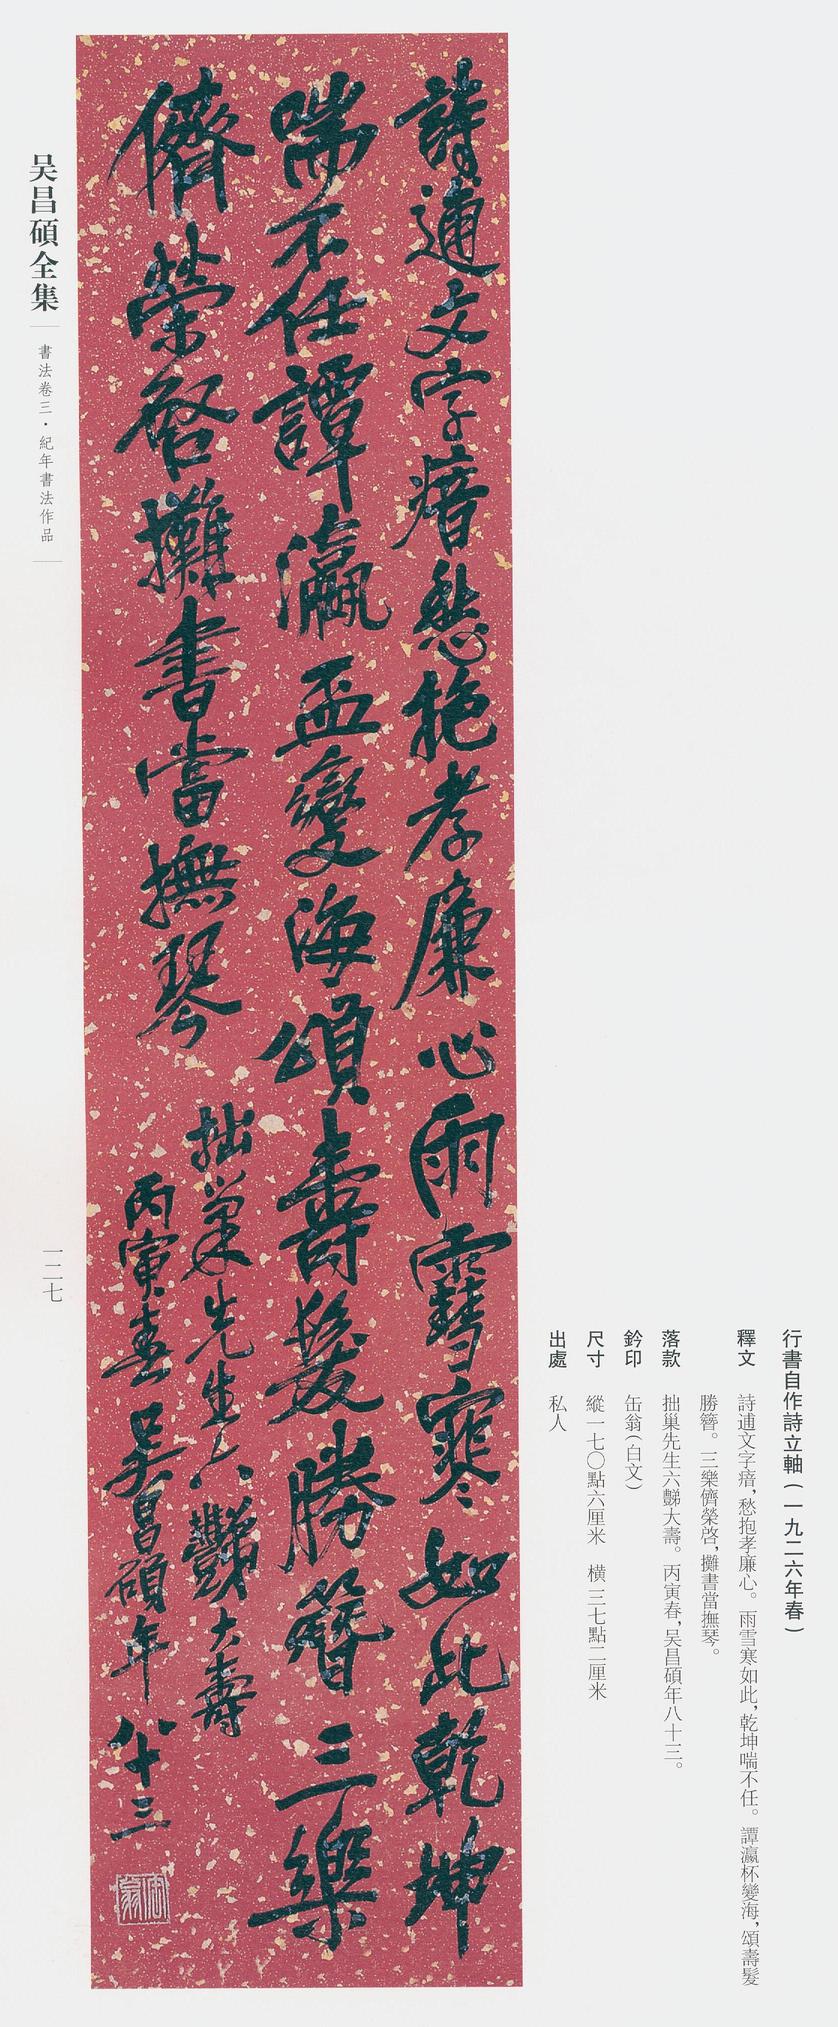 行書自作詩立軸(一九二六年春)
釋文 詩逋文字瘖,愁抱孝廉心。雨雪寒如此,乾坤喘不任。譚瀛杯變海,頌壽髮
勝簪。三樂儕榮啓,攤書當撫琴。
落款 拙巢先生六豑大壽。丙寅春,吴昌碩年八十三。
鈐印 缶翁(白文)
尺寸 縱一七〇點六厘米 橫三七點二厘米
出處 私人
詩逋文字瘖愁抱孝廉心雨雪寒如此乾坤
喘不任譚瀛盃變海頌壽髮勝簪三樂
儕榮啓攤書當撫琴
拙巢先生六豑大壽
丙寅春吴昌碩年八十三
缶翁
吴昌碩全集
書法卷三·紀年書法作品
一二七